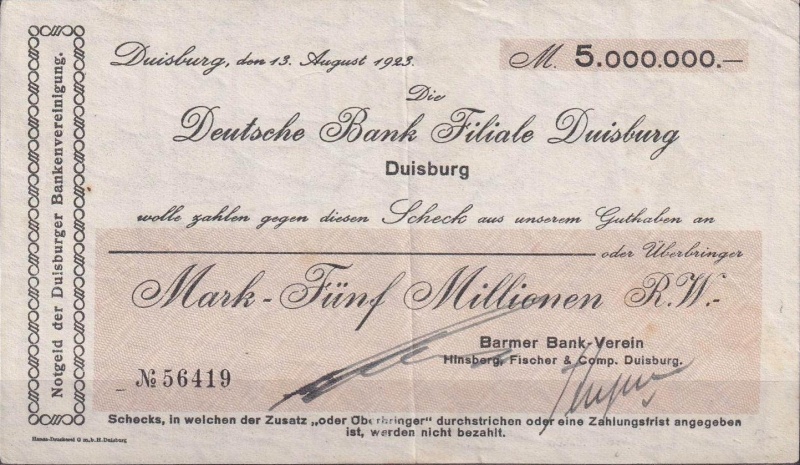 Notgeld der Duisburger Bankenvereinigung.
Duisburg, den 13. August 1923.
M. 5.000.000.—
Die
Deutsche Bank Filiale Duisburg
Duisburg
wolle zahlen gegen diesen Scheck aus unserem Guthaben an
oder Überbringer
Mark - Fünf Millionen R.W.-
Barmer Bank-Verein
Hinsberg, Fischer & Comp. Duisburg.
№ 56419
Schecks, in welchen der Zusatz „oder Überbringer" durchstrichen oder eine Zahlungsfrist angegeben
ist, werden nicht bezahlt.
G.m.b.H. Duisburg